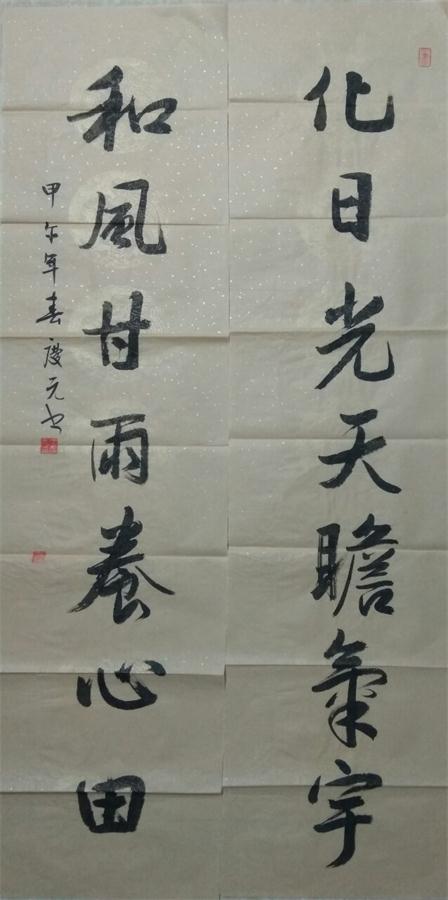 化日光天瞻氣宇
和風甘雨養心田
甲午年春慶元书